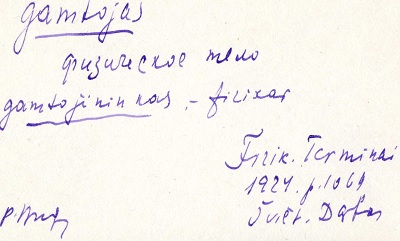 gamtojas
физическое тело
gamtojininkas, – fizikas
Fizik. Terminai
1924. p. 1069
Švět. Darbas